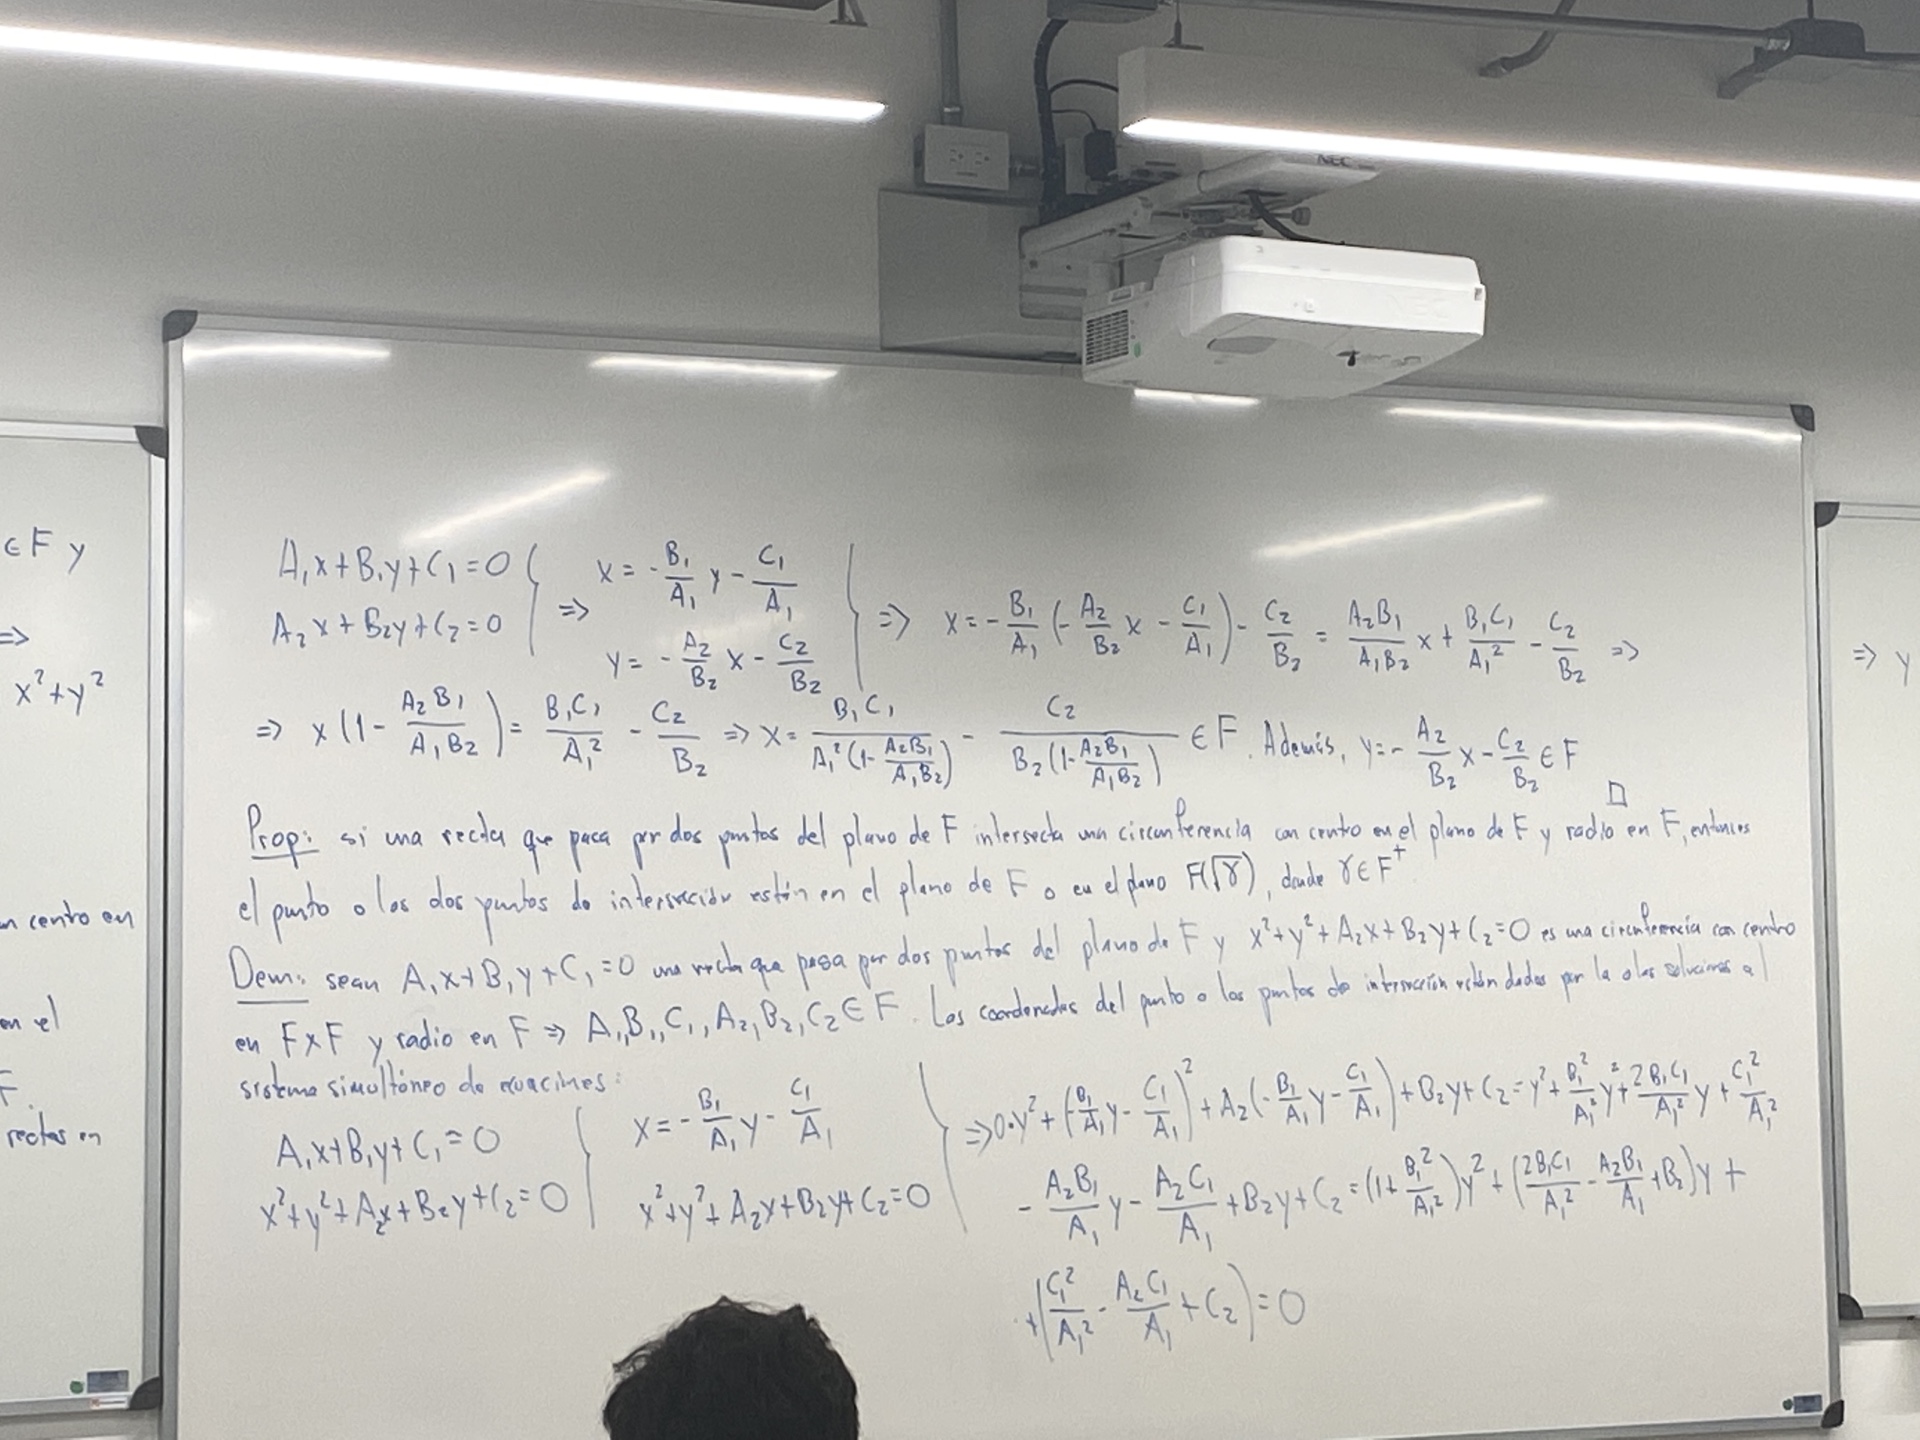 ∈ F y
⇒
x²+y²
n centro en
en el
F.
rectas en
A₁x+B₁y+C₁=0
A₂x+B₂y+C₂=0
⇒ x = -B₁/A₁ y - C₁/A₁
y = -A₂/B₂ x - C₂/B₂
⇒ x = -B₁/A₁ (-A₂/B₂ x - C₁/A₁) - C₂/B₂ = A₂B₁/A₁B₂ x + B₁C₁/A₁² - C₂/B₂ ⇒
⇒ x (1 - A₂B₁/A₁B₂) = B₁C₁/A₁² - C₂/B₂ ⇒ x = B₁C₁/A₁²(1-A₂B₁/A₁B₂) - C₂/B₂(1-A₂B₁/A₁B₂) ∈ F. Además, y = -A₂/B₂ x - C₂/B₂ ∈ F
□
Prop: si una recta que pasa por dos puntos del plano de F intersecta una circunferencia con centro en el plano de F y radio en F, entonces
el punto o los dos puntos de intersección están en el plano de F o en el plano F(√γ), donde γ∈F⁺.
Dem: sean A₁x+B₁y+C₁=0 una recta que pasa por dos puntos del plano de F y x²+y²+A₂x+B₂y+C₂=0 es una circunferencia con centro
en F×F y radio en F ⇒ A₁,B₁,C₁,A₂,B₂,C₂ ∈ F. Las coordenadas del punto o los puntos de intersección están dadas por la o las soluciones al
sistema simultáneo de ecuaciones:
A₁x+B₁y+C₁=0
x²+y²+A₂x+B₂y+C₂=0
x = -B₁/A₁ y - C₁/A₁
x²+y²+A₂x+B₂y+C₂=0
⇒ 0=y²+(-B₁/A₁ y - C₁/A₁)²+A₂(-B₁/A₁ y - C₁/A₁)+B₂y+C₂=y²+B₁²/A₁² y²+2B₁C₁/A₁² y+C₁²/A₁²
- A₂B₁/A₁ y - A₂C₁/A₁ + B₂y + C₂ = (1+B₁²/A₁²)y² + (2B₁C₁/A₁² - A₂B₁/A₁ + B₂)y +
+(C₁²/A₁² - A₂C₁/A₁ + C₂)=0
⇒ y
NEC